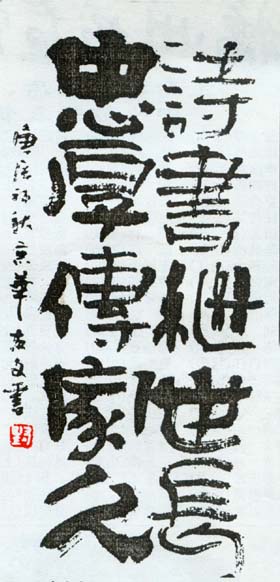 詩書繼世長
忠厚傳家久
庚辰初秋京華文書